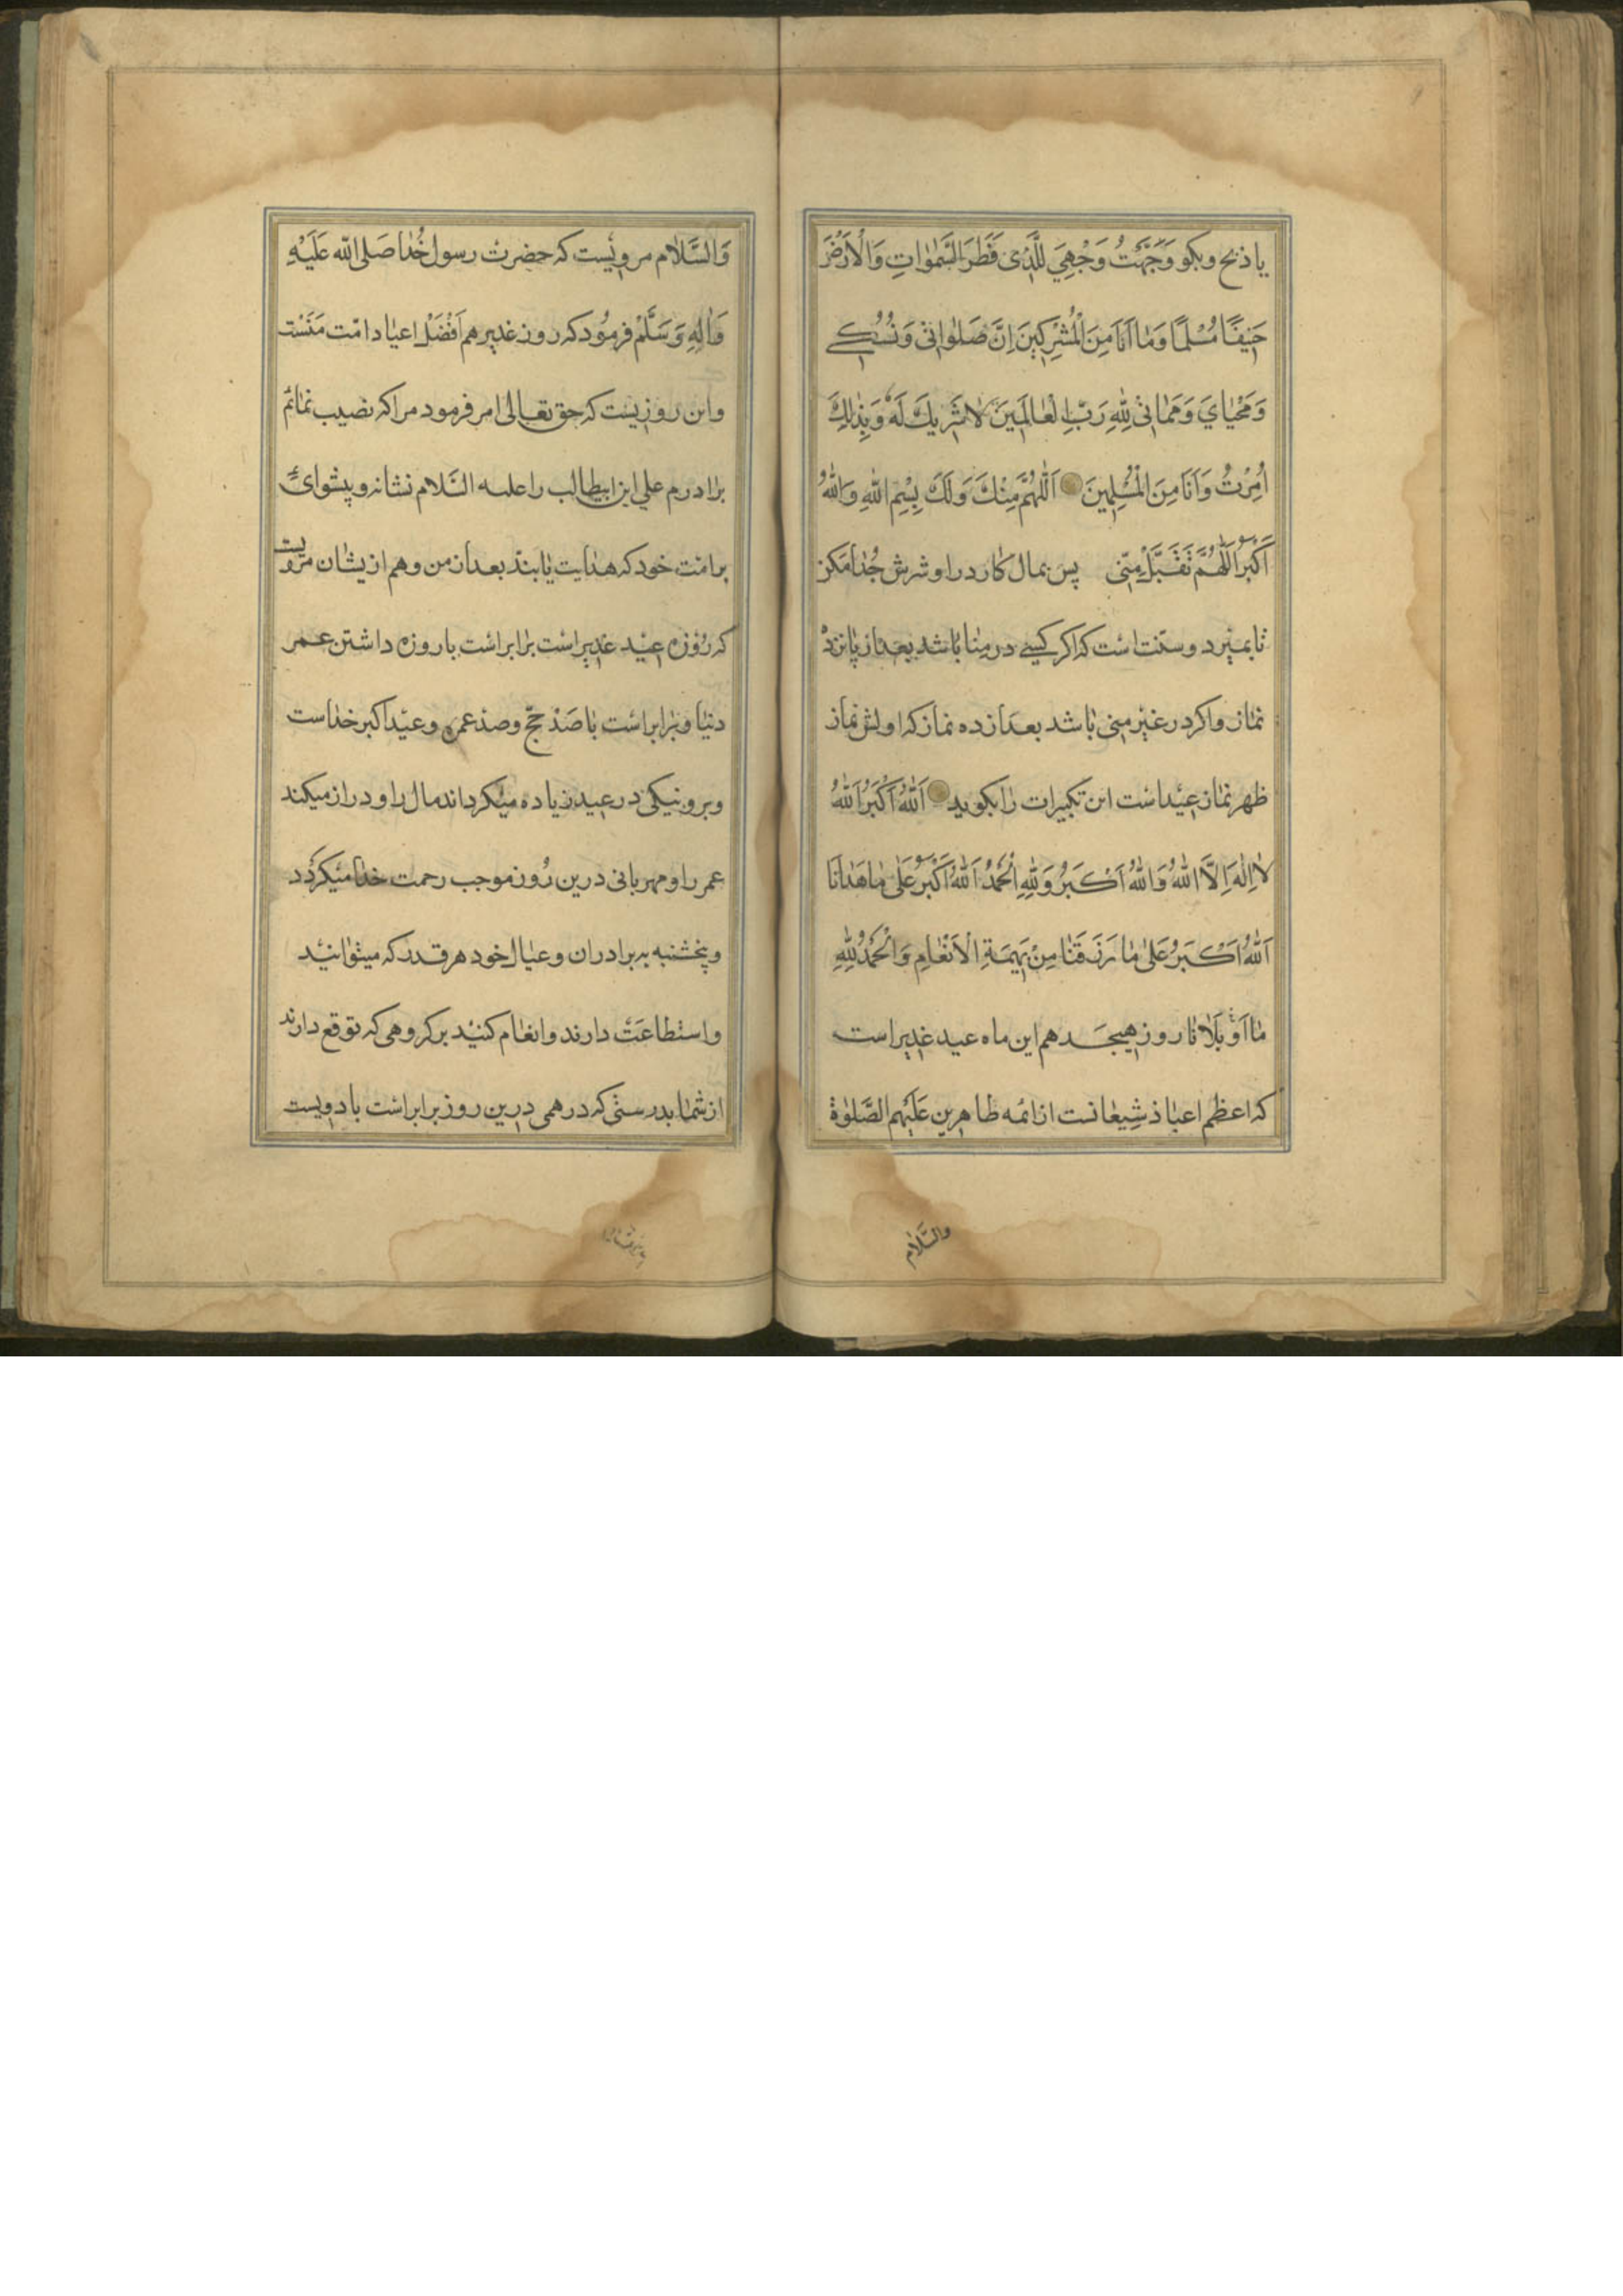 یا ذبح وبکو وَجَّهْتُ وَجْهِيَ لِلَّذِی فَطَرَ السَّمٰوَاتِ وَالْاَرْضَ
حَنِیفًا مُسْلِمًا وَمٰا اَنَا مِنَ الْمُشْرِکِینَ اِنَّ صَلَوٰاتِی وَنُسُکِے
وَمَحْیٰايَ وَمَمٰاتِی لِلّٰهِ رَبِّ الْعٰالَمِینَ لٰا شَرِیكَ لَهُ وَبِذٰلِكَ
اُمِرْتُ وَاَنَا مِنَ الْمُسْلِمِینَ اَللّٰهُمَّ مِنْكَ وَلَكَ بِسْمِ اللّٰهِ وَاللّٰهُ
اَکْبَرُ اَللّٰهُمَّ تَقَبَّلْ مِنّی پس بمال کارد را و شرش جُدٰا مَکن
تا بمیرد وسنّت است که اکر کیسے در مِنٰا باشد بعداز پانزده
نماز واکر در غیر منی باشد بعداز ده نماز که اولش نماز
ظهر نماز عید است این تکبیرات را بکوید اَللّٰهُ اَکْبَرُ اَللّٰهُ
لٰا اِلٰهَ اِلَّا اللّٰهُ وَاللّٰهُ اَکْبَرُ وَلِلّٰهِ الْحَمْدُ اَللّٰهُ اَکْبَرُ عَلٰی مٰا هَدٰانَا
اَللّٰهُ اَکْبَرُ عَلٰی مٰا رَزَقَنٰا مِنْ بَهِیمَةِ الْاَنْعٰامِ وَالْحَمْدُ لِلّٰهِ
مٰا اَوْ بَلَانٰا روز هیجدهم این ماه عید غدیر است
که اعظم اعیاد شیعانست از ائمه طاهرین عَلَیْهِم الصَّلوٰة
والسَّلٰام
وَالسَّلٰام مرویست که حضرت رسول خُدٰا صَلی الله عَلَیْهِ
وَاٰلِهِ وَسَلَّمْ فرمُود که روز غدیر هم اَفْضَلْ اعیاد امّت مَنَسْت
واین روزیست که حق تعالی امر فرمود مرا که نصیب نمائم
برادرم علي ابن ابیطالب را علیه السَّلام نشانه و پیشوائی
بر امّت خود که هدایت یابند بعداز من وهم از یشان مرویست
که رُوزه عید غدیر است برابر است با روزه داشتن عمر
دنیا وبرابر است با صَد حجّ و صد عمره و عید اکبر خداست
وبر ونیکی در عید زیاده میکرداند مال را و دراز میکند
عمر را و مهربانی درین رُوز موجب رحمت خدا میکردد
وپخشنبه به برادران و عیال خود هر قدر که میتوانید
واستطاعَت دارند و انعام کنید بر کروهی که توقع دارند
از شما بدرستی که درهمی درین روز برابر است با دویست